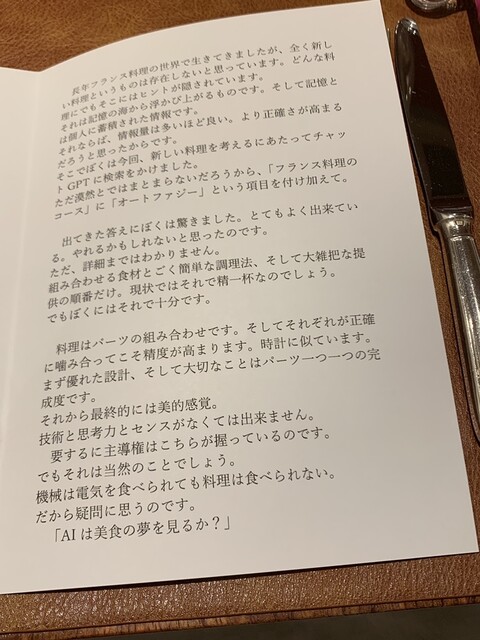 長年フランス料理の世界で生きてきましたが、全く新し
い料理というものは存在しないと思っています。どんな料
理にでもそこにはヒントが隠されています。
それは記憶の海から浮かび上がるものです。そして記憶と
は個人に蓄積された情報です。
それならば、情報量は多いほど良い。より正確さが高まる
だろうと思ったからです。
そこでぼくは今回、新しい料理を考えるにあたってチャッ
トGPTに検索をかけました。
ただ漠然とではまとまらないだろうから、「フランス料理の
コース」に「オートファジー」という項目を付け加えて。
出てきた答えにぼくは驚きました。とてもよく出来てい
る。やれるかもしれないと思ったのです。
ただ、詳細まではわかりません。
組み合わせる食材とごく簡単な調理法、そして大雑把な提
供の順番だけ。現状ではそれで精一杯なのでしょう。
でもぼくにはそれで十分です。
料理はパーツの組み合わせです。そしてそれぞれが正確
に噛み合ってこそ精度が高まります。時計に似ています。
まず優れた設計、そして大切なことはパーツ一つ一つの完
成度です。
それから最終的には美的感覚。
技術と思考力とセンスがなくては出来ません。
要するに主導権はこちらが握っているのです。
でもそれは当然のことでしょう。
機械は電気を食べられても料理は食べられない。
だから疑問に思うのです。
「AIは美食の夢を見るか？」